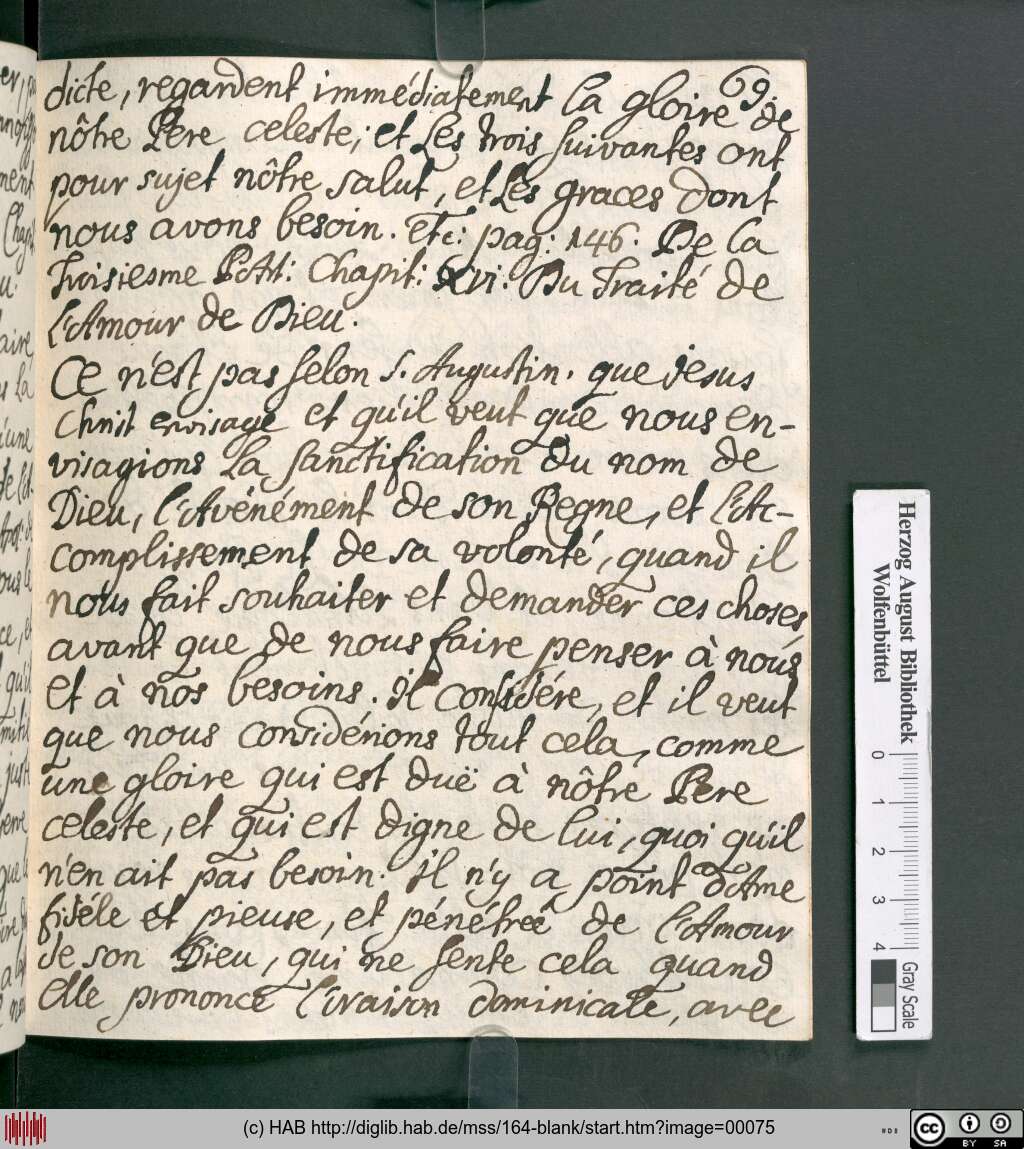 69.
dicte, regardent immédiatement la gloire de
nôtre Pere celeste; et Les trois suivantes ont
pour sujet nôtre salut, et Les graces dont
nous avons besoin. Etc: pag: 146. De la
troisiesme Part: Chapit: Xvi. Du Traité de
l'Amour de Dieu.
Ce n'est pas selon S. Augustin. que jesus
Christ envisage et qu'il veut que nous en-
visagions La sanctification du nom de
Dieu, l'Avénément de son Regne, et l'Ac-
complissement de sa volonté, quand il
nous fait souhaiter et demander ces choses
avant que de nous faire penser à nous
et à nos besoins. il considére, et il veut
que nous considérions tout cela, comme
une gloire qui est duë à nôtre Pere
celeste, et qui est digne de lui, quoi qu'il
n'en ait pas besoin. il n'y a point d'Ame
fidéle et pieuse, et pénétreé de l'Amour
de son Dieu, qui ne sente cela quand
elle prononce l'oraison dominicale, avec
Herzog August Bibliothek
Wolfenbüttel
0 1 2 3 4
Gray Scale
(c) HAB http://diglib.hab.de/mss/164-blank/start.htm?image=00075
cc BY SA